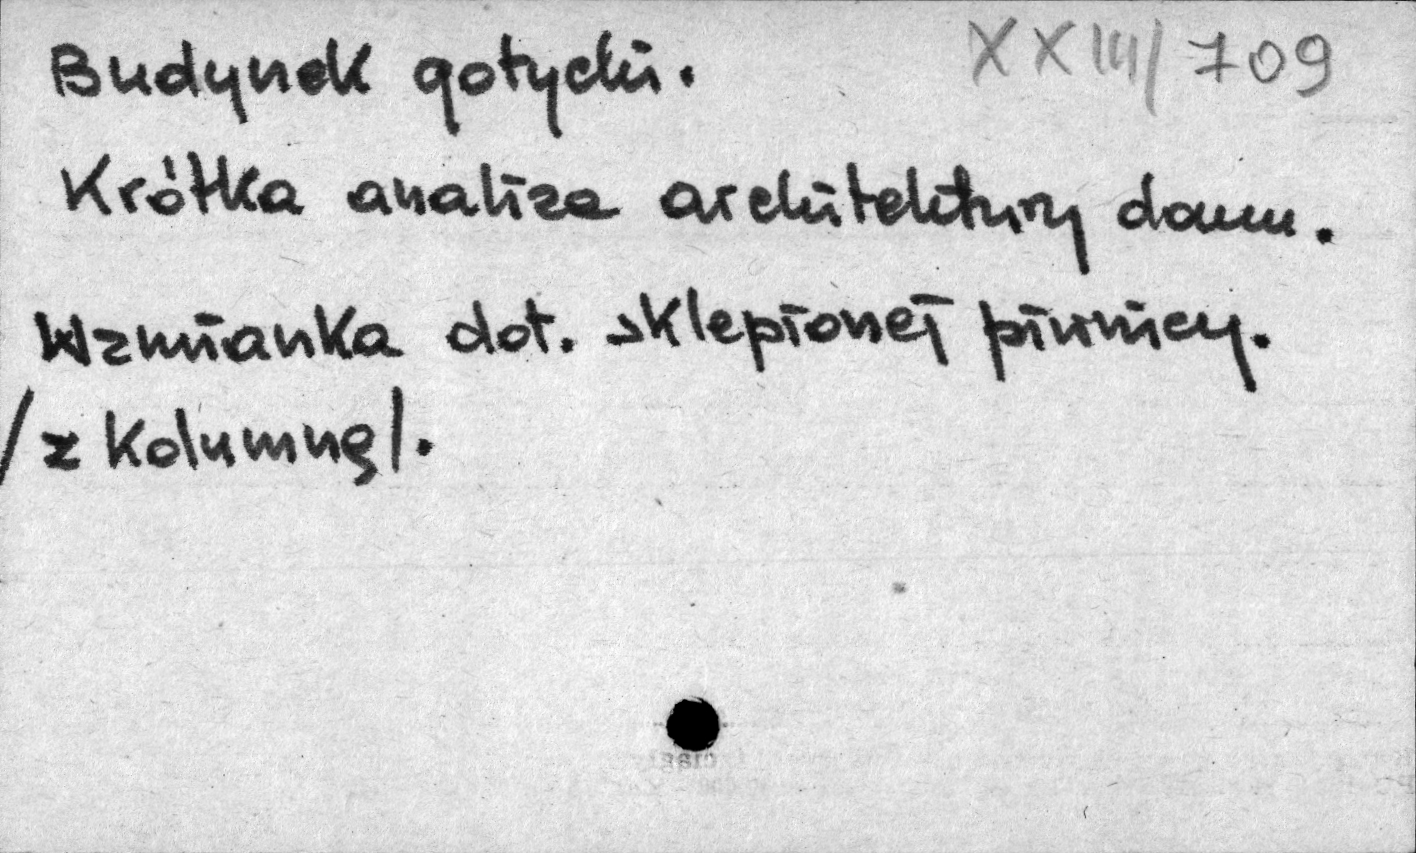 XXIII/709
Budynek gotycki.
Krótka analiza architektury domu.
Wzmianka dot. sklepionej piwnicy.
/z kolumnę/.